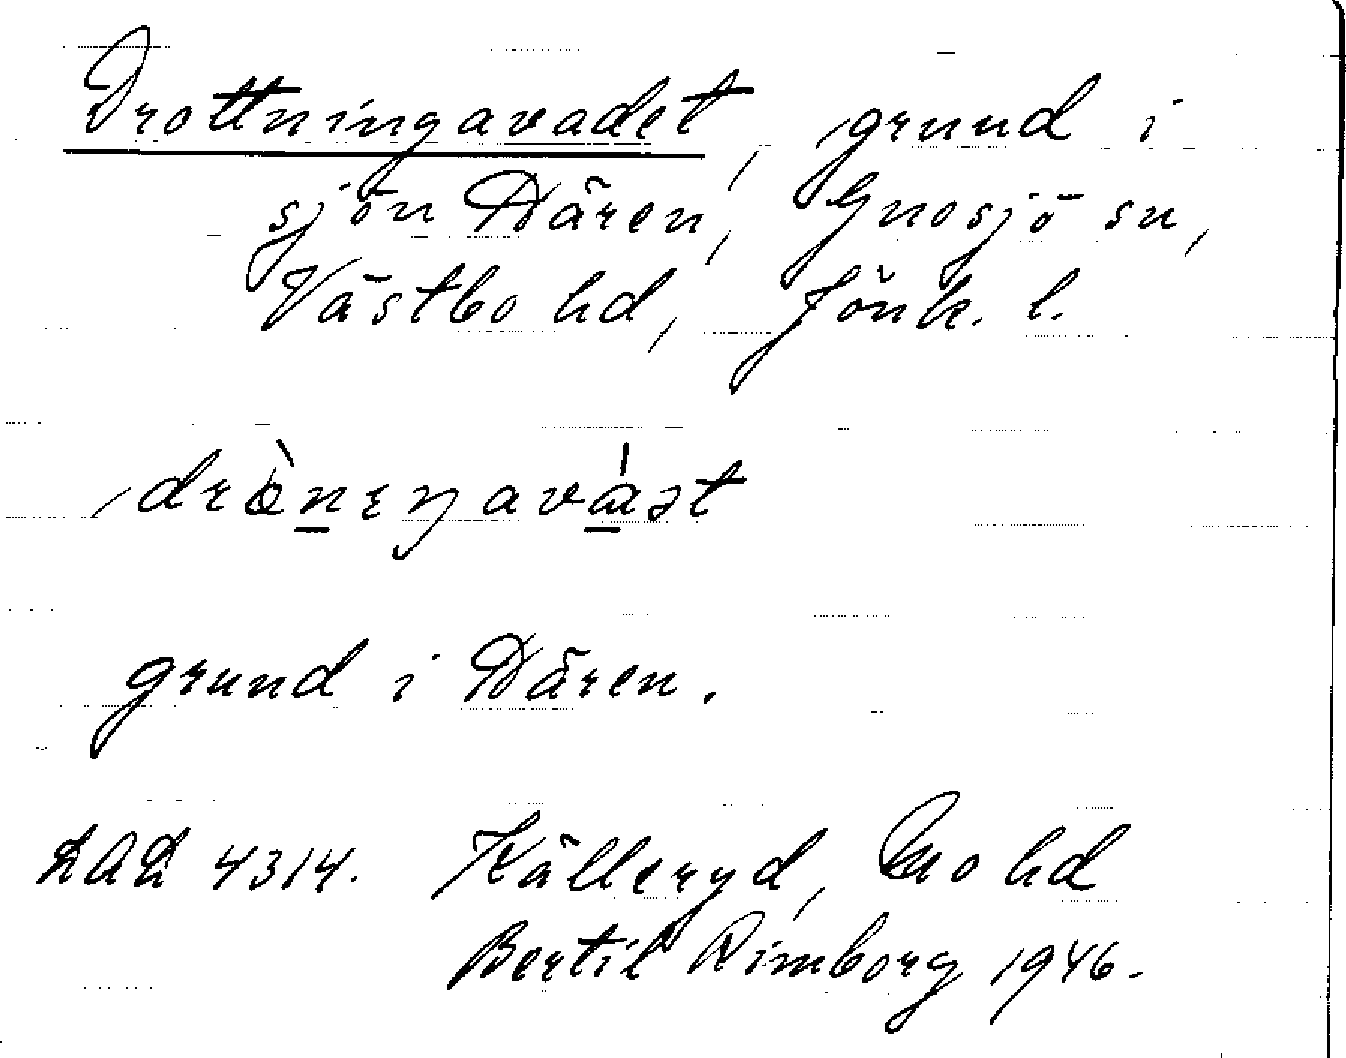 Drottningavadet, grund i
sjön Hären, Gnosjö sn,
Västbo hd, Jönk. l.
grund i Hären.
DAL 4314. Källeryd, Mo hd
Bertil Rimborg 1946.